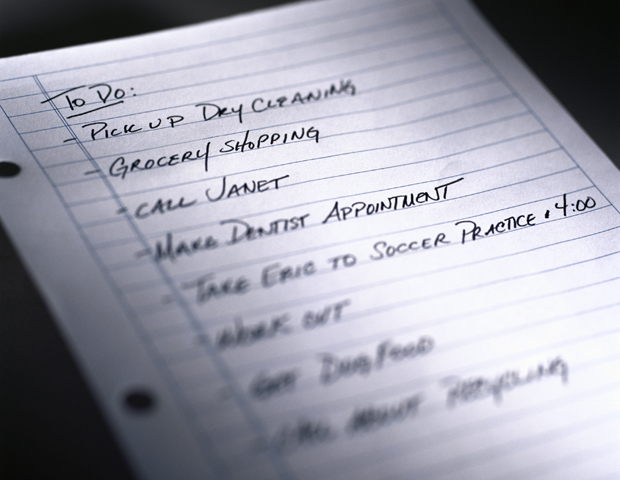 To Do:
- Pick up Dry Cleaning
- Grocery Shopping
- Call Janet
- Make Dentist Appointment
- Take Eric to Soccer Practice • 4:00
- Work out
- Get Dog Food
- Call About Recycling